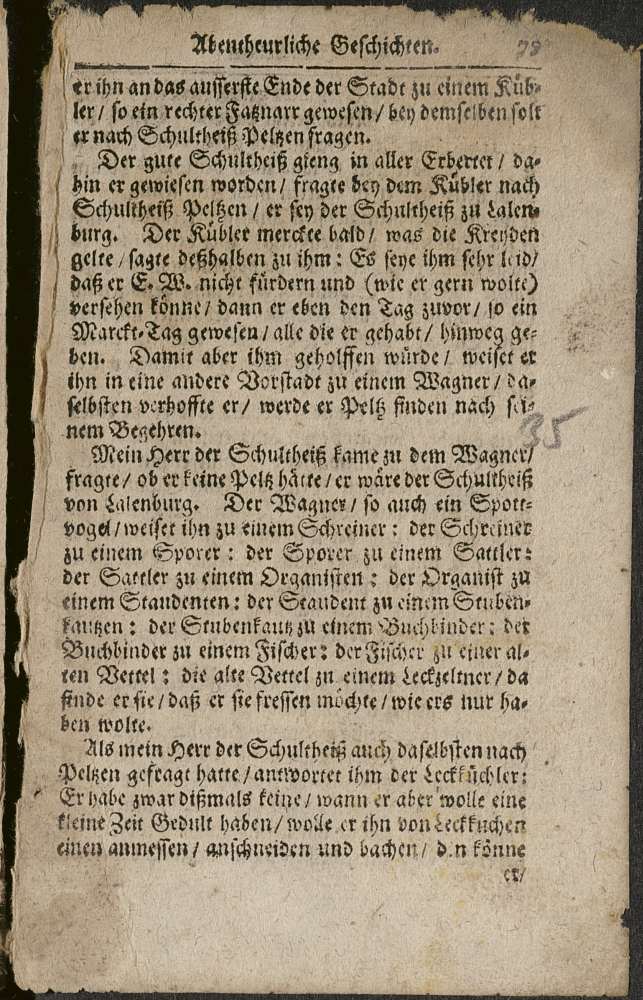 Abentheurliche Geschichten.
er ihn an das ausserste Ende der Stadt zu einem Küb-
ler / so ein rechter Fatznarr gewesen / bey demselben solt
er nach Schultheiß Peltzen fragen.
Der gute Schultheiß gieng in aller Erbertet / da-
hin er gewiesen worden / fragte bey dem Kübler nach
Schultheiß Peltzen / er sey der Schultheiß zu Lalen-
burg. Der Kübler merckte bald / was die Kreyden
gelte / sagte deßhalben zu ihm: Es seye ihm sehr leid /
daß er E. W. nicht fürdern und (wie er gern wolte)
versehen könne / dann er eben den Tag zuvor / so ein
Marckt-Tag gewesen / alle die er gehabt / hinweg ge-
ben. Damit aber ihm geholffen würde / weiset er
ihn in eine andere Vorstadt zu einem Wagner / da-
selbsten verhoffte er / werde er Peltz finden nach sei-
nem Begehren.
35
Mein Herr der Schultheiß kame zu dem Wagner /
fragte / ob er keine Peltz hätte / er wäre der Schultheiß
von Lalenburg. Der Wagner / so auch ein Spott-
vogel / weiset ihn zu einem Schreiner: der Schreiner
zu einem Sporer: der Sporer zu einem Sattler:
der Sattler zu einem Organisten: der Organist zu
einem Staudenten: der Staudent zu einem Stuben-
kautzen: der Stubenkautz zu einem Buchbinder: der
Buchbinder zu einem Fischer: der Fischer zu einer al-
ten Vettel: die alte Vettel zu einem Leckzeltner / da
finde er sie / daß er sie fressen möchte / wie ers nur ha-
ben wolte.
Als mein Herr der Schultheiß auch daselbsten nach
Peltzen gefragt hatte / antwortet ihm der Leckküchler:
Er habe zwar dißmals keine / wann er aber wolle eine
kleine Zeit Gedult haben / wolle er ihn von Leckkuchen
einen anmessen / anschneiden und bachen / den könne
er /